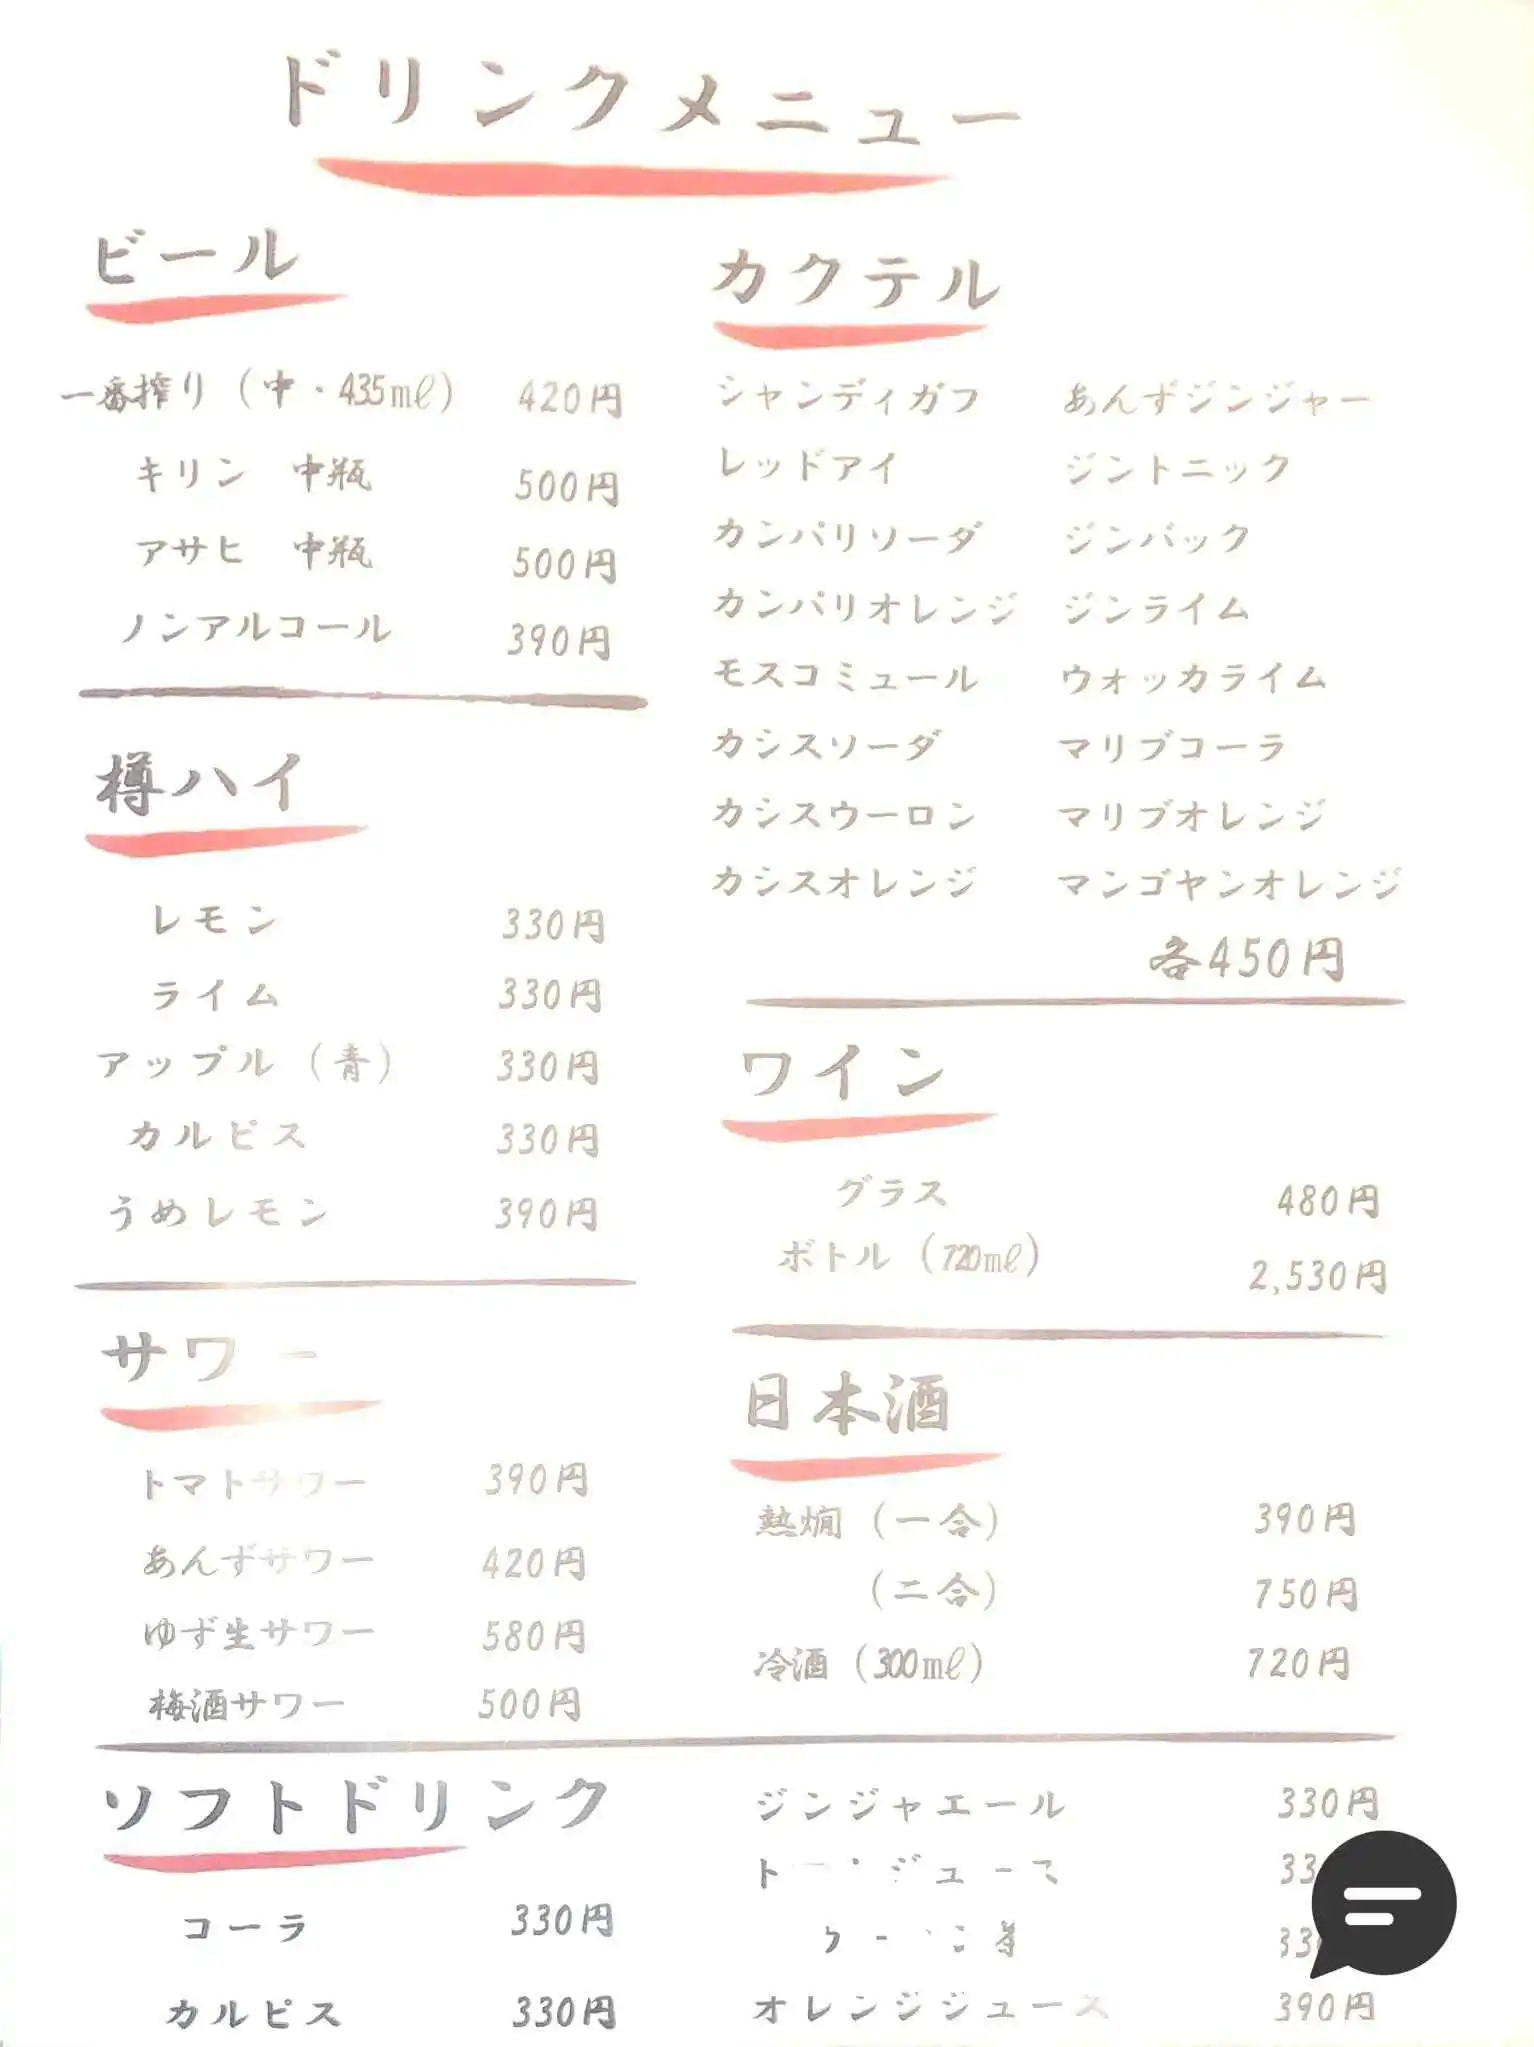 ドリンクメニュー
ビール
一番搾り（中・435㎖） 420円
キリン 中瓶 500円
アサヒ 中瓶 500円
ノンアルコール 390円
樽ハイ
レモン 330円
ライム 330円
アップル（青） 330円
カルピス 330円
うめレモン 390円
サワー
トマトサワー 390円
あんずサワー 420円
ゆず生サワー 580円
梅酒サワー 500円
カクテル
シャンディガフ あんずジンジャー
レッドアイ ジントニック
カンパリソーダ ジンバック
カンパリオレンジ ジンライム
モスコミュール ウォッカライム
カシスソーダ マリブコーラ
カシスウーロン マリブオレンジ
カシスオレンジ マンゴヤンオレンジ
各450円
ワイン
グラス 480円
ボトル（720㎖） 2,530円
日本酒
熱燗（一合） 390円
（二合） 750円
冷酒（300㎖） 720円
ソフトドリンク
コーラ 330円
カルピス 330円
ジンジャエール 330円
オレンジジュース 390円